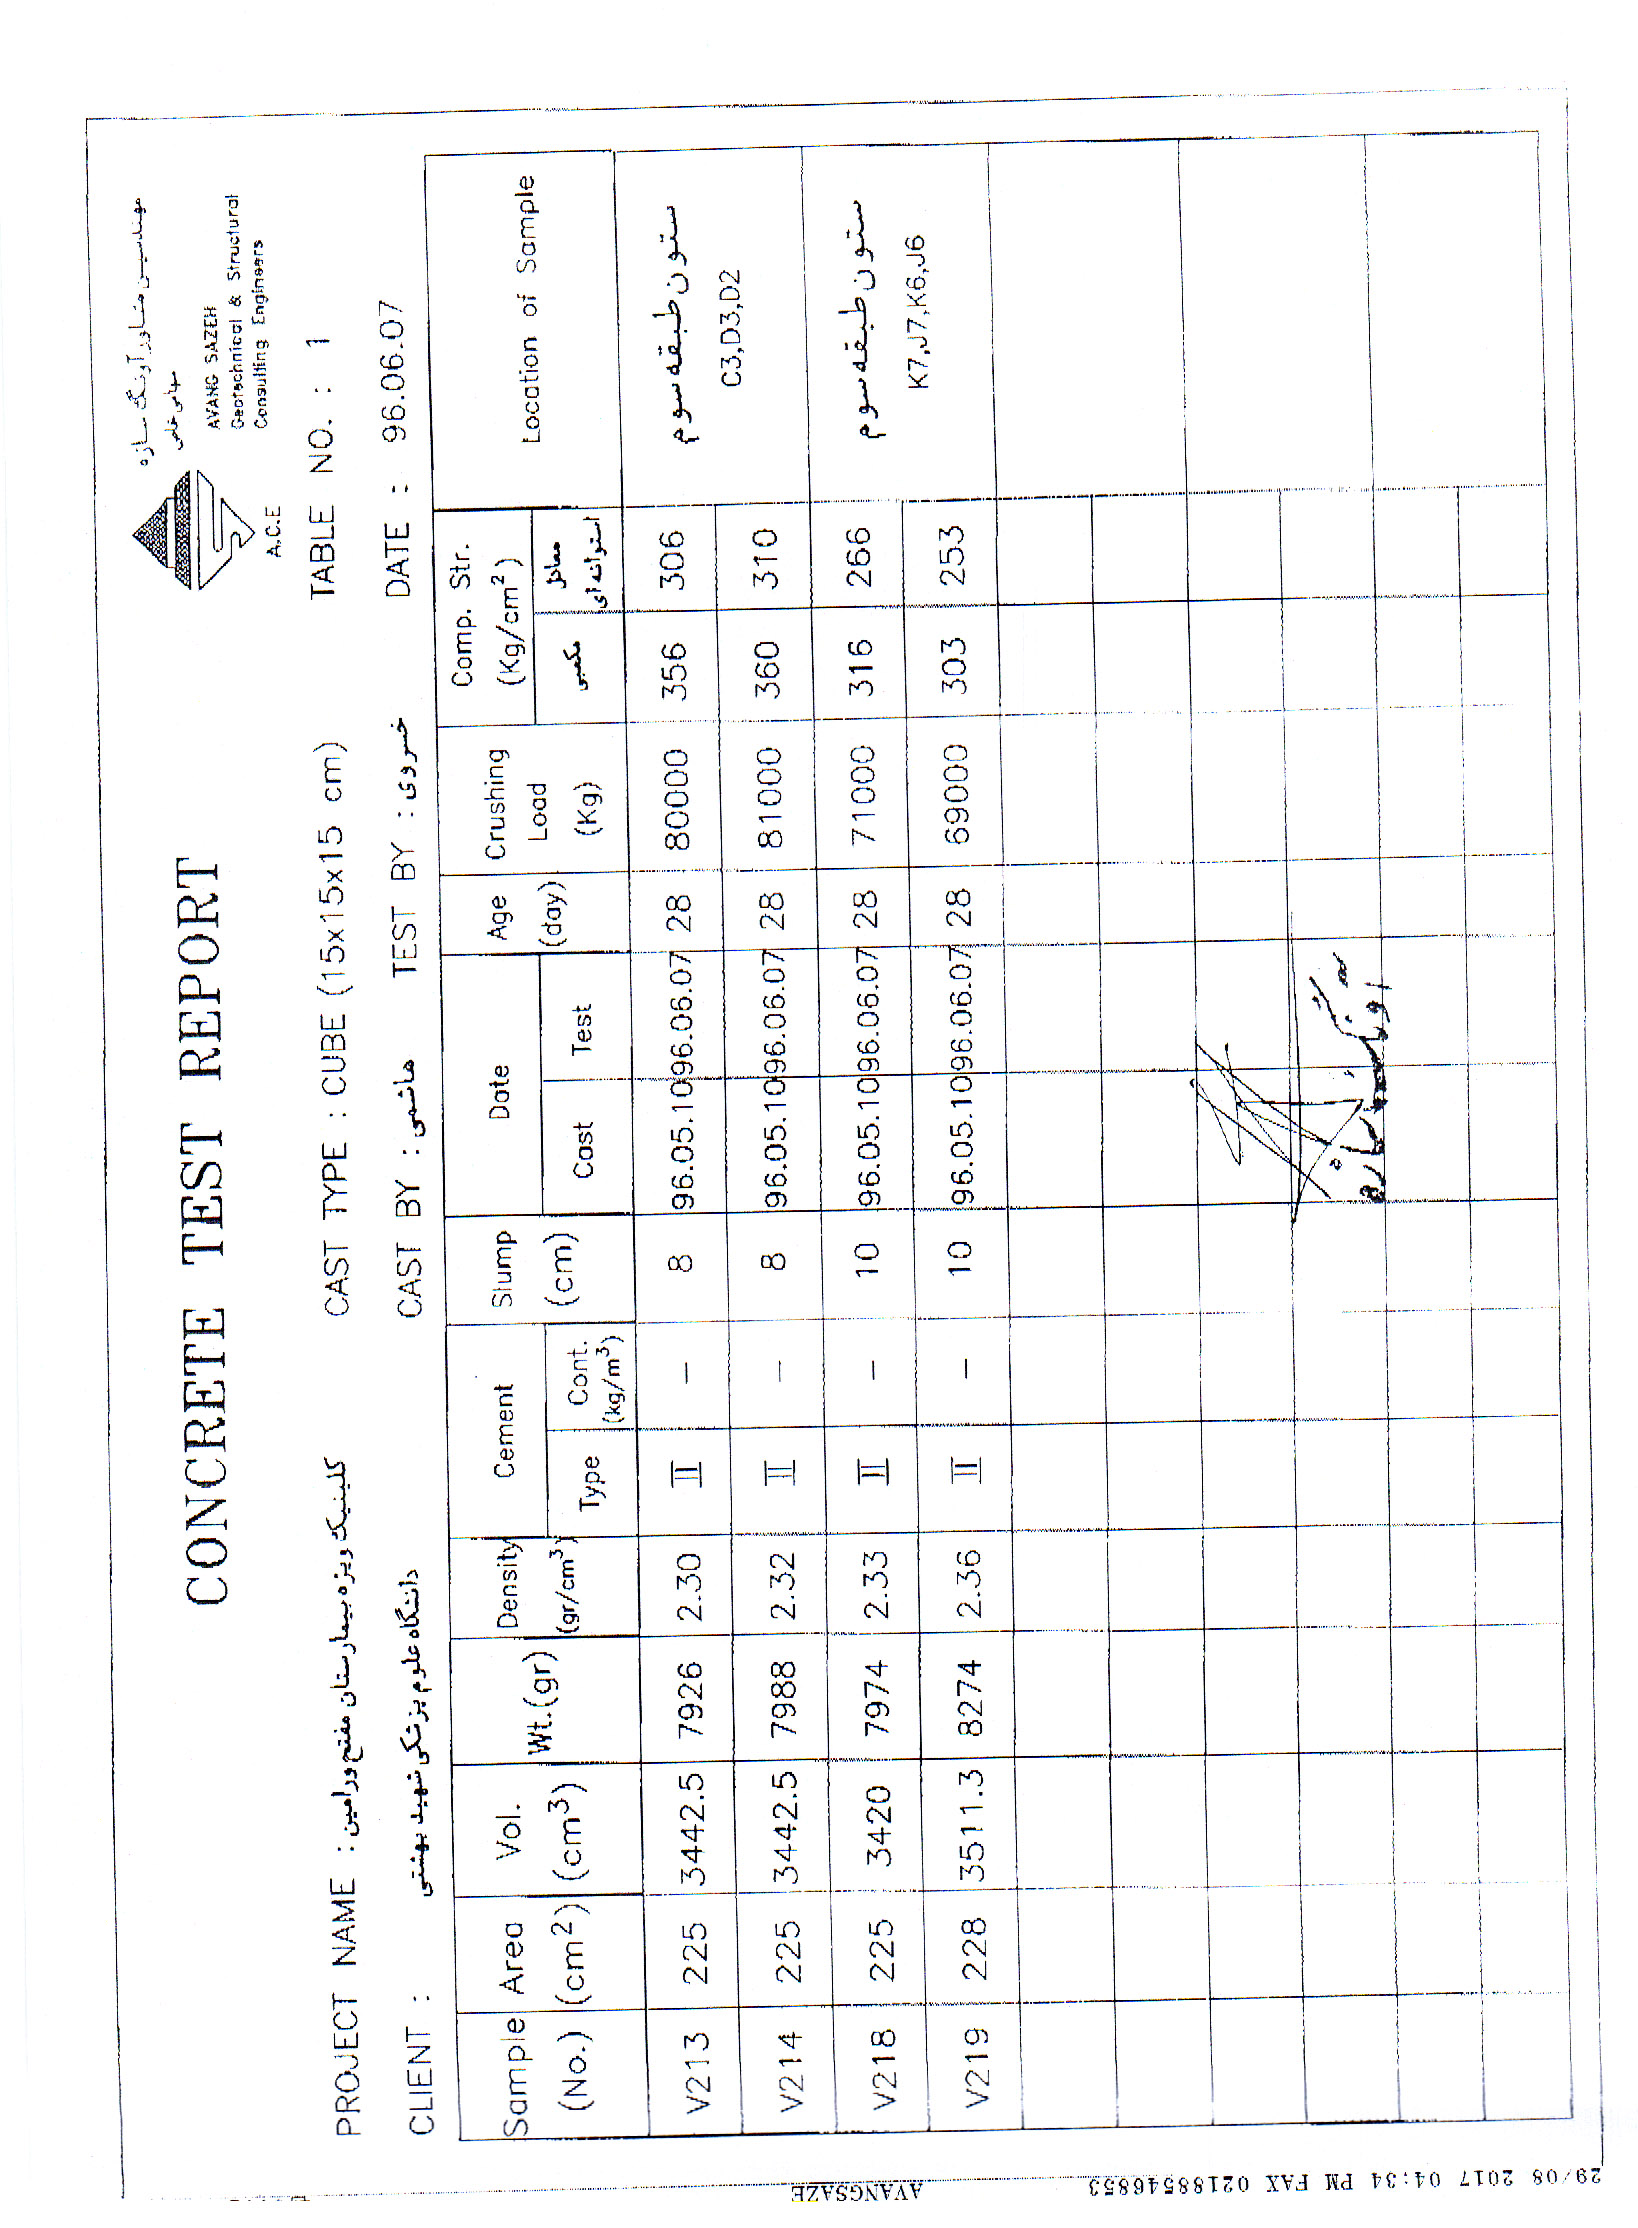 مهندسین مشاور آونگ سازه
سهامی خاص
AVANG SAZEH
Geotechnical & Structural
Consulting Engineers
A.C.E
CONCRETE TEST REPORT
PROJECT NAME : کلینیک ویژه بیمارستان مفتح ورامین CAST TYPE : CUBE (15x15x15 cm) TABLE NO. : 1
CLIENT : دانشگاه علوم پزشکی شهید بهشتی CAST BY : هاشمی TEST BY : خسروی DATE : 96.06.07
Sample (No.) Area (cm2) Vol. (cm3) Wt.(gr) Density (gr/cm3) Cement Slump (cm) Date Age (day) Crushing Load (Kg) Comp. Str. (Kg/cm2) Location of Sample
Type Cont. (kg/m3) Cast Test مکعبی معادل استوانه ای
V213 225 3442.5 7926 2.30 II – 8 96.05.10 96.06.07 28 80000 356 306 ستون طبقه سوم
V214 225 3442.5 7988 2.32 II – 8 96.05.10 96.06.07 28 81000 360 310 C3,D3,D2
V218 225 3420 7974 2.33 II – 10 96.05.10 96.06.07 28 71000 316 266 ستون طبقه سوم
V219 228 3511.3 8274 2.36 II – 10 96.05.10 96.06.07 28 69000 303 253 K7,J7,K6,J6
29/08 2017 04:34 PM FAX 02188546853 AVANGSAZE